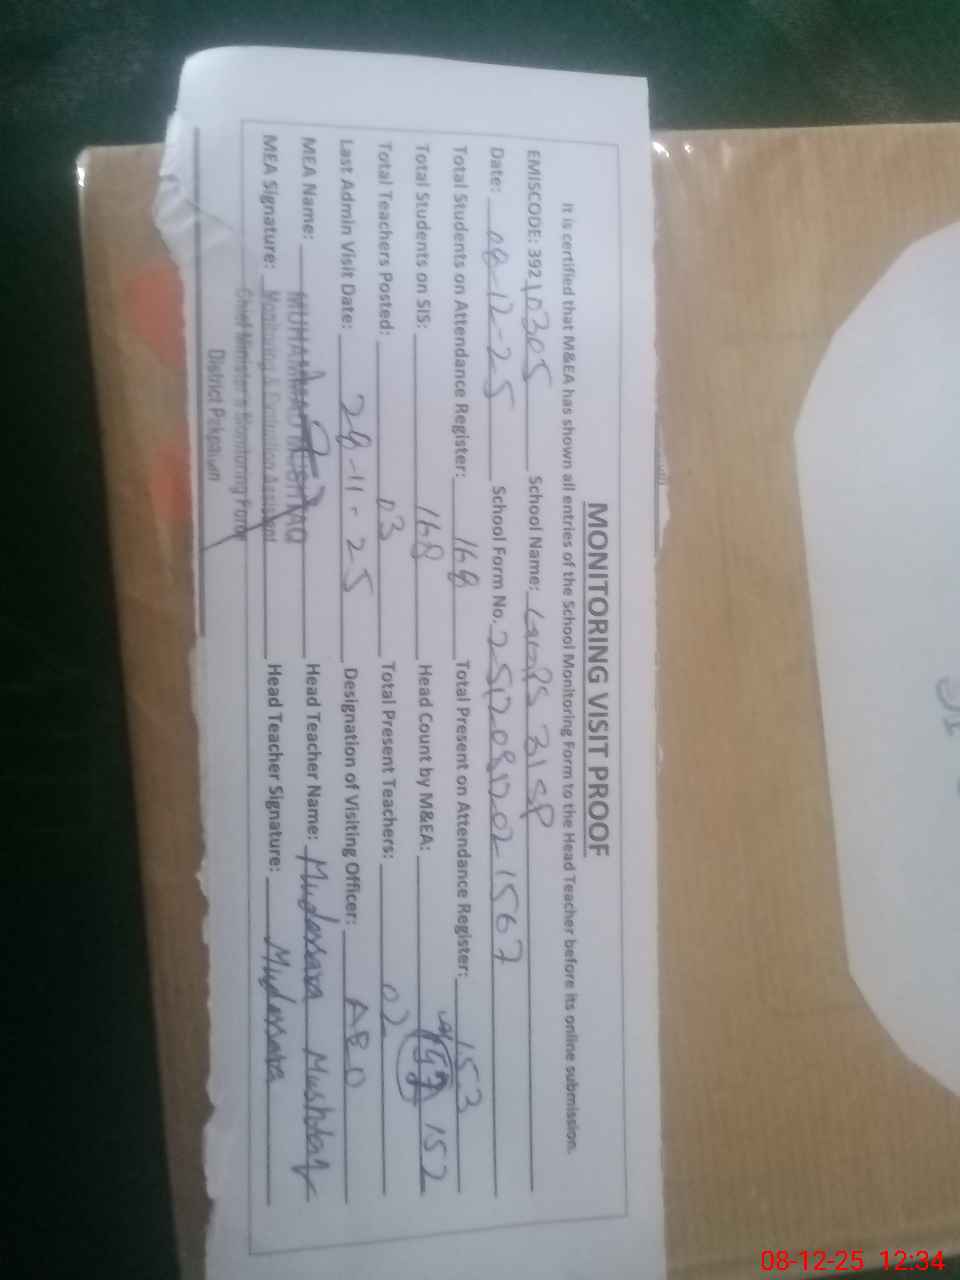 MONITORING VISIT PROOF
It is certified that M&EA has shown all entries of the School Monitoring Form to the Head Teacher before its online submission.
EMISCODE: 39210305 School Name: 31 SP
Date: 08-12-25 School Form No.
Total Students on Attendance Register: 168 Total Present on Attendance Register: 153
Total Students on SIS: 168 Head Count by M&EA: 152
Total Teachers Posted: 03 Total Present Teachers: 02
Last Admin Visit Date: 28-11-25 Designation of Visiting Officer: AEO
MEA Name: MUHAMMAD Head Teacher Name: Mudassara Mushtaq
MEA Signature: Monitoring & Evaluation Assistant Head Teacher Signature: Mudassara
Chief Minister's Monitoring Force
District Pakpattan
08-12-25 12:34